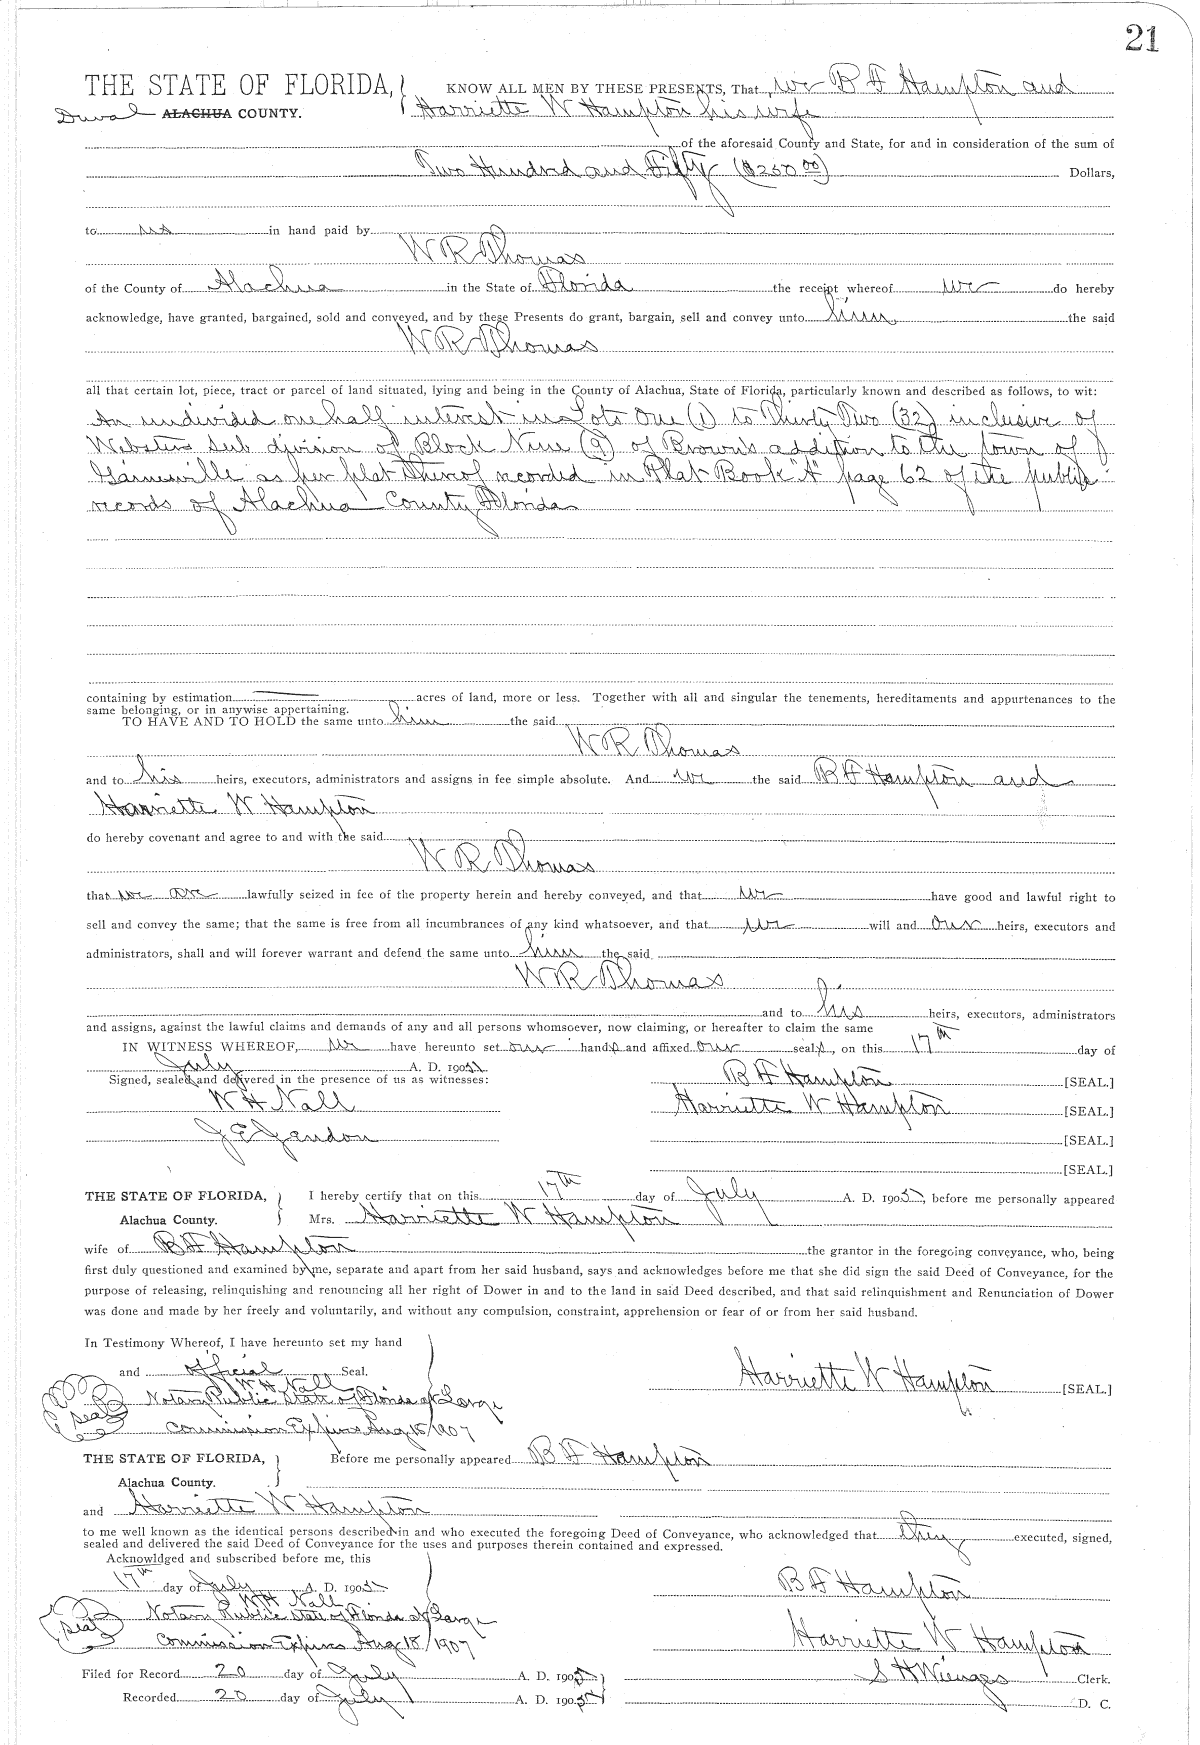 21
THE STATE OF FLORIDA, KNOW ALL MEN BY THESE PRESENTS, That we B F Hampton and
Duval ALACHUA COUNTY. Harriette W Hampton his wife
of the aforesaid County and State, for and in consideration of the sum of
Two Hundred and Fifty ($250.00) Dollars,
to us in hand paid by
W R Thomas
of the County of Alachua in the State of Florida the receipt whereof we do hereby
acknowledge, have granted, bargained, sold and conveyed, and by these Presents do grant, bargain, sell and convey unto him the said
W R Thomas
all that certain lot, piece, tract or parcel of land situated, lying and being in the County of Alachua, State of Florida, particularly known and described as follows, to wit:
An undivided one half interest in Lots One (1) to Thirty Two (32) inclusive of
Websters Sub division of Block Nine (9) of Brown's addition to the town of
Gainesville as per plat thereof recorded in Plat Book "A" page 62 of the public
records of Alachua County Florida
containing by estimation acres of land, more or less. Together with all and singular the tenements, hereditaments and appurtenances to the
same belonging, or in anywise appertaining.
TO HAVE AND TO HOLD the same unto him the said
W R Thomas
and to his heirs, executors, administrators and assigns in fee simple absolute. And we the said B F Hampton and
Harriette W Hampton
do hereby covenant and agree to and with the said
W R Thomas
that we are lawfully seized in fee of the property herein and hereby conveyed, and that we have good and lawful right to
sell and convey the same; that the same is free from all incumbrances of any kind whatsoever, and that we will and our heirs, executors and
administrators, shall and will forever warrant and defend the same unto him the said
W R Thomas
and to his heirs, executors, administrators
and assigns, against the lawful claims and demands of any and all persons whomsoever, now claiming, or hereafter to claim the same
IN WITNESS WHEREOF, we have hereunto set our hands and affixed our seals, on this 17th day of
July A. D. 1905
Signed, sealed and delivered in the presence of us as witnesses: B F Hampton [SEAL.]
W H Nall Harriette W Hampton [SEAL.]
[SEAL.]
[SEAL.]
THE STATE OF FLORIDA, I hereby certify that on this 17th day of July A. D. 1905, before me personally appeared
Alachua County. Mrs. Harriette W Hampton
wife of B F Hampton the grantor in the foregoing conveyance, who, being
first duly questioned and examined by me, separate and apart from her said husband, says and acknowledges before me that she did sign the said Deed of Conveyance, for the
purpose of releasing, relinquishing and renouncing all her right of Dower in and to the land in said Deed described, and that said relinquishment and Renunciation of Dower
was done and made by her freely and voluntarily, and without any compulsion, constraint, apprehension or fear of or from her said husband.
In Testimony Whereof, I have hereunto set my hand
and official Seal. Harriette W Hampton [SEAL.]
W H Nall
Seal Notary Public State of Florida at Large
Commission Expires Aug 18/1907
THE STATE OF FLORIDA, Before me personally appeared B F Hampton
Alachua County.
and Harriette W Hampton
to me well known as the identical persons described in and who executed the foregoing Deed of Conveyance, who acknowledged that they executed, signed,
sealed and delivered the said Deed of Conveyance for the uses and purposes therein contained and expressed.
Acknowldged and subscribed before me, this
17th day of July A. D. 1905 B F Hampton
W H Nall
Seal Notary Public State of Florida at Large
Commission Expires Aug 18/1907 Harriette W Hampton
Filed for Record 20 day of July A. D. 1905 S H Wienges Clerk.
Recorded 20 day of July A. D. 1905 D. C.